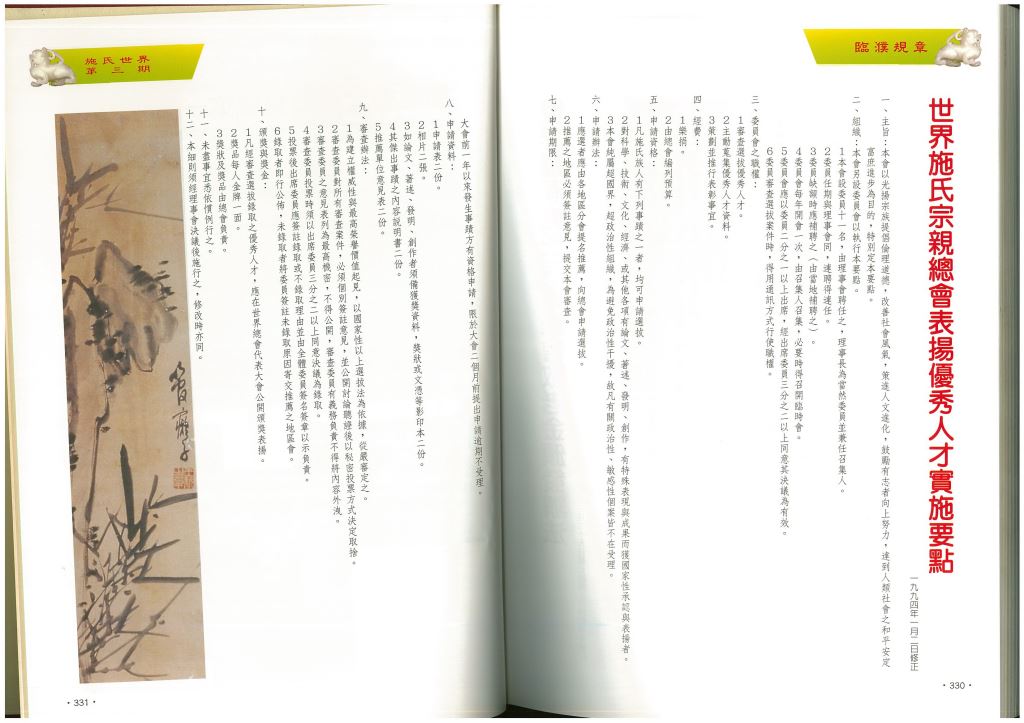 臨濮規章
世界施氏宗親總會表揚優秀人才實施要點
一九九四年一月二日修正
一、主旨：本會以光揚宗族提倡倫理道德，改善社會風氣，策進人文進化，鼓勵有志者向上努力，達到人類社會之和平安定
富庶進步為目的，特別定本要點。
二、組織：本會另設委員會以執行本要點。
1本會設委員十一名，由理事會聘任之，理事長為當然委員並兼任召集人。
2委員任期與理事會同，連聘得連任。
3委員缺額時應補聘之（由當地補聘之）。
4委員會每年開會一次，由召集人召集，必要時得召開臨時會。
5委員會應以委員二分之一以上出席，經出席委員三分之二以上同意其決議為有效。
6委員審查選拔案件時，得用通訊方式行使職權。
三、委員會之職權：
1審查選拔優秀人才。
2主動蒐集優秀人才資料。
3策劃並推行表彰事宜。
四、經費：
1樂捐。
2由總會編列預算。
五、申請資格：
1凡施氏族人有下列事蹟之一者，均可申請選拔。
2對科學、技術、文化、經濟、或其他各項有論文、著述、發明、創作，有特殊表現與成果而獲國家性承認與表揚者。
3本會純屬超國界，超政治性組織，為避免政治性干擾，故凡有關政治性、敏感性個案皆不在受理。
六、申請辦法：
1應選者應由各地區分會提名推薦，向總會申請選拔。
2推薦之地區必須簽註意見，提交本會審查。
七、申請期限：
・330・
施氏世界
第三期
大會前一年以來發生事績方有資格申請，限於大會二個月前提出申請逾期不受理。
八、申請資料：
1申請表二份。
2相片二張。
3如論文、著述、發明、創作者須備獲獎資料，獎狀或文憑等影印本二份。
4其傑出事蹟之內容說明書二份。
5推薦單位意見表二份。
九、審查辦法：
1為建立權威性與最高榮譽價值起見，以國家性以上選拔法為依據，從嚴審定之。
2審查委員對所有審查案件，必須個別簽註意見，並公開討論聽證後以秘密投票方式決定取捨。
3審查委員之意見表列為最高機密，不得公開，審查委員有義務負責不得將內容外洩。
4審查委員投票時須以出席委員三分之二以上同意決議為錄取。
5投票後出席委員應簽註錄取或不錄取理由並由全體委員簽名簽章以示負責。
6錄取者即行公佈，未錄取者將委員簽註未錄取原因寄交推薦之地區會。
十、頒獎與獎金：
1凡經審查選拔錄取之優秀人才，應在世界總會代表大會公開頒獎表揚。
2獎品每人金牌一面。
3獎狀及獎品由總會負責。
十一、未盡事宜悉依慣例行之。
十二、本細則須經理事會決議後施行之，修改時亦同。
・331・